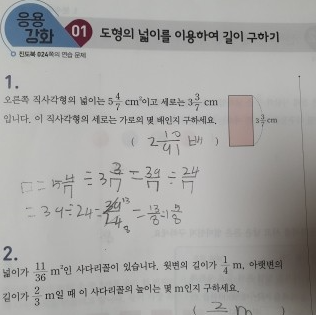 응용 강화 01 도형의 넓이를 이용하여 길이 구하기
진도북 024쪽의 연습 문제
1.
오른쪽 직사각형의 넓이는 5 4/7 cm²이고 세로는 3 3/7 cm
입니다. 이 직사각형의 세로는 가로의 몇 배인지 구하세요.
3 3/7 cm
( 2 10/91 배 )
= 39/7 ÷ 24/7
= 39 ÷ 24 =
2.
넓이가 11/36 m²인 사다리꼴이 있습니다. 윗변의 길이가 1/4 m, 아랫변의
길이가 2/3 m일 때 이 사다리꼴의 높이는 몇 m인지 구하세요.